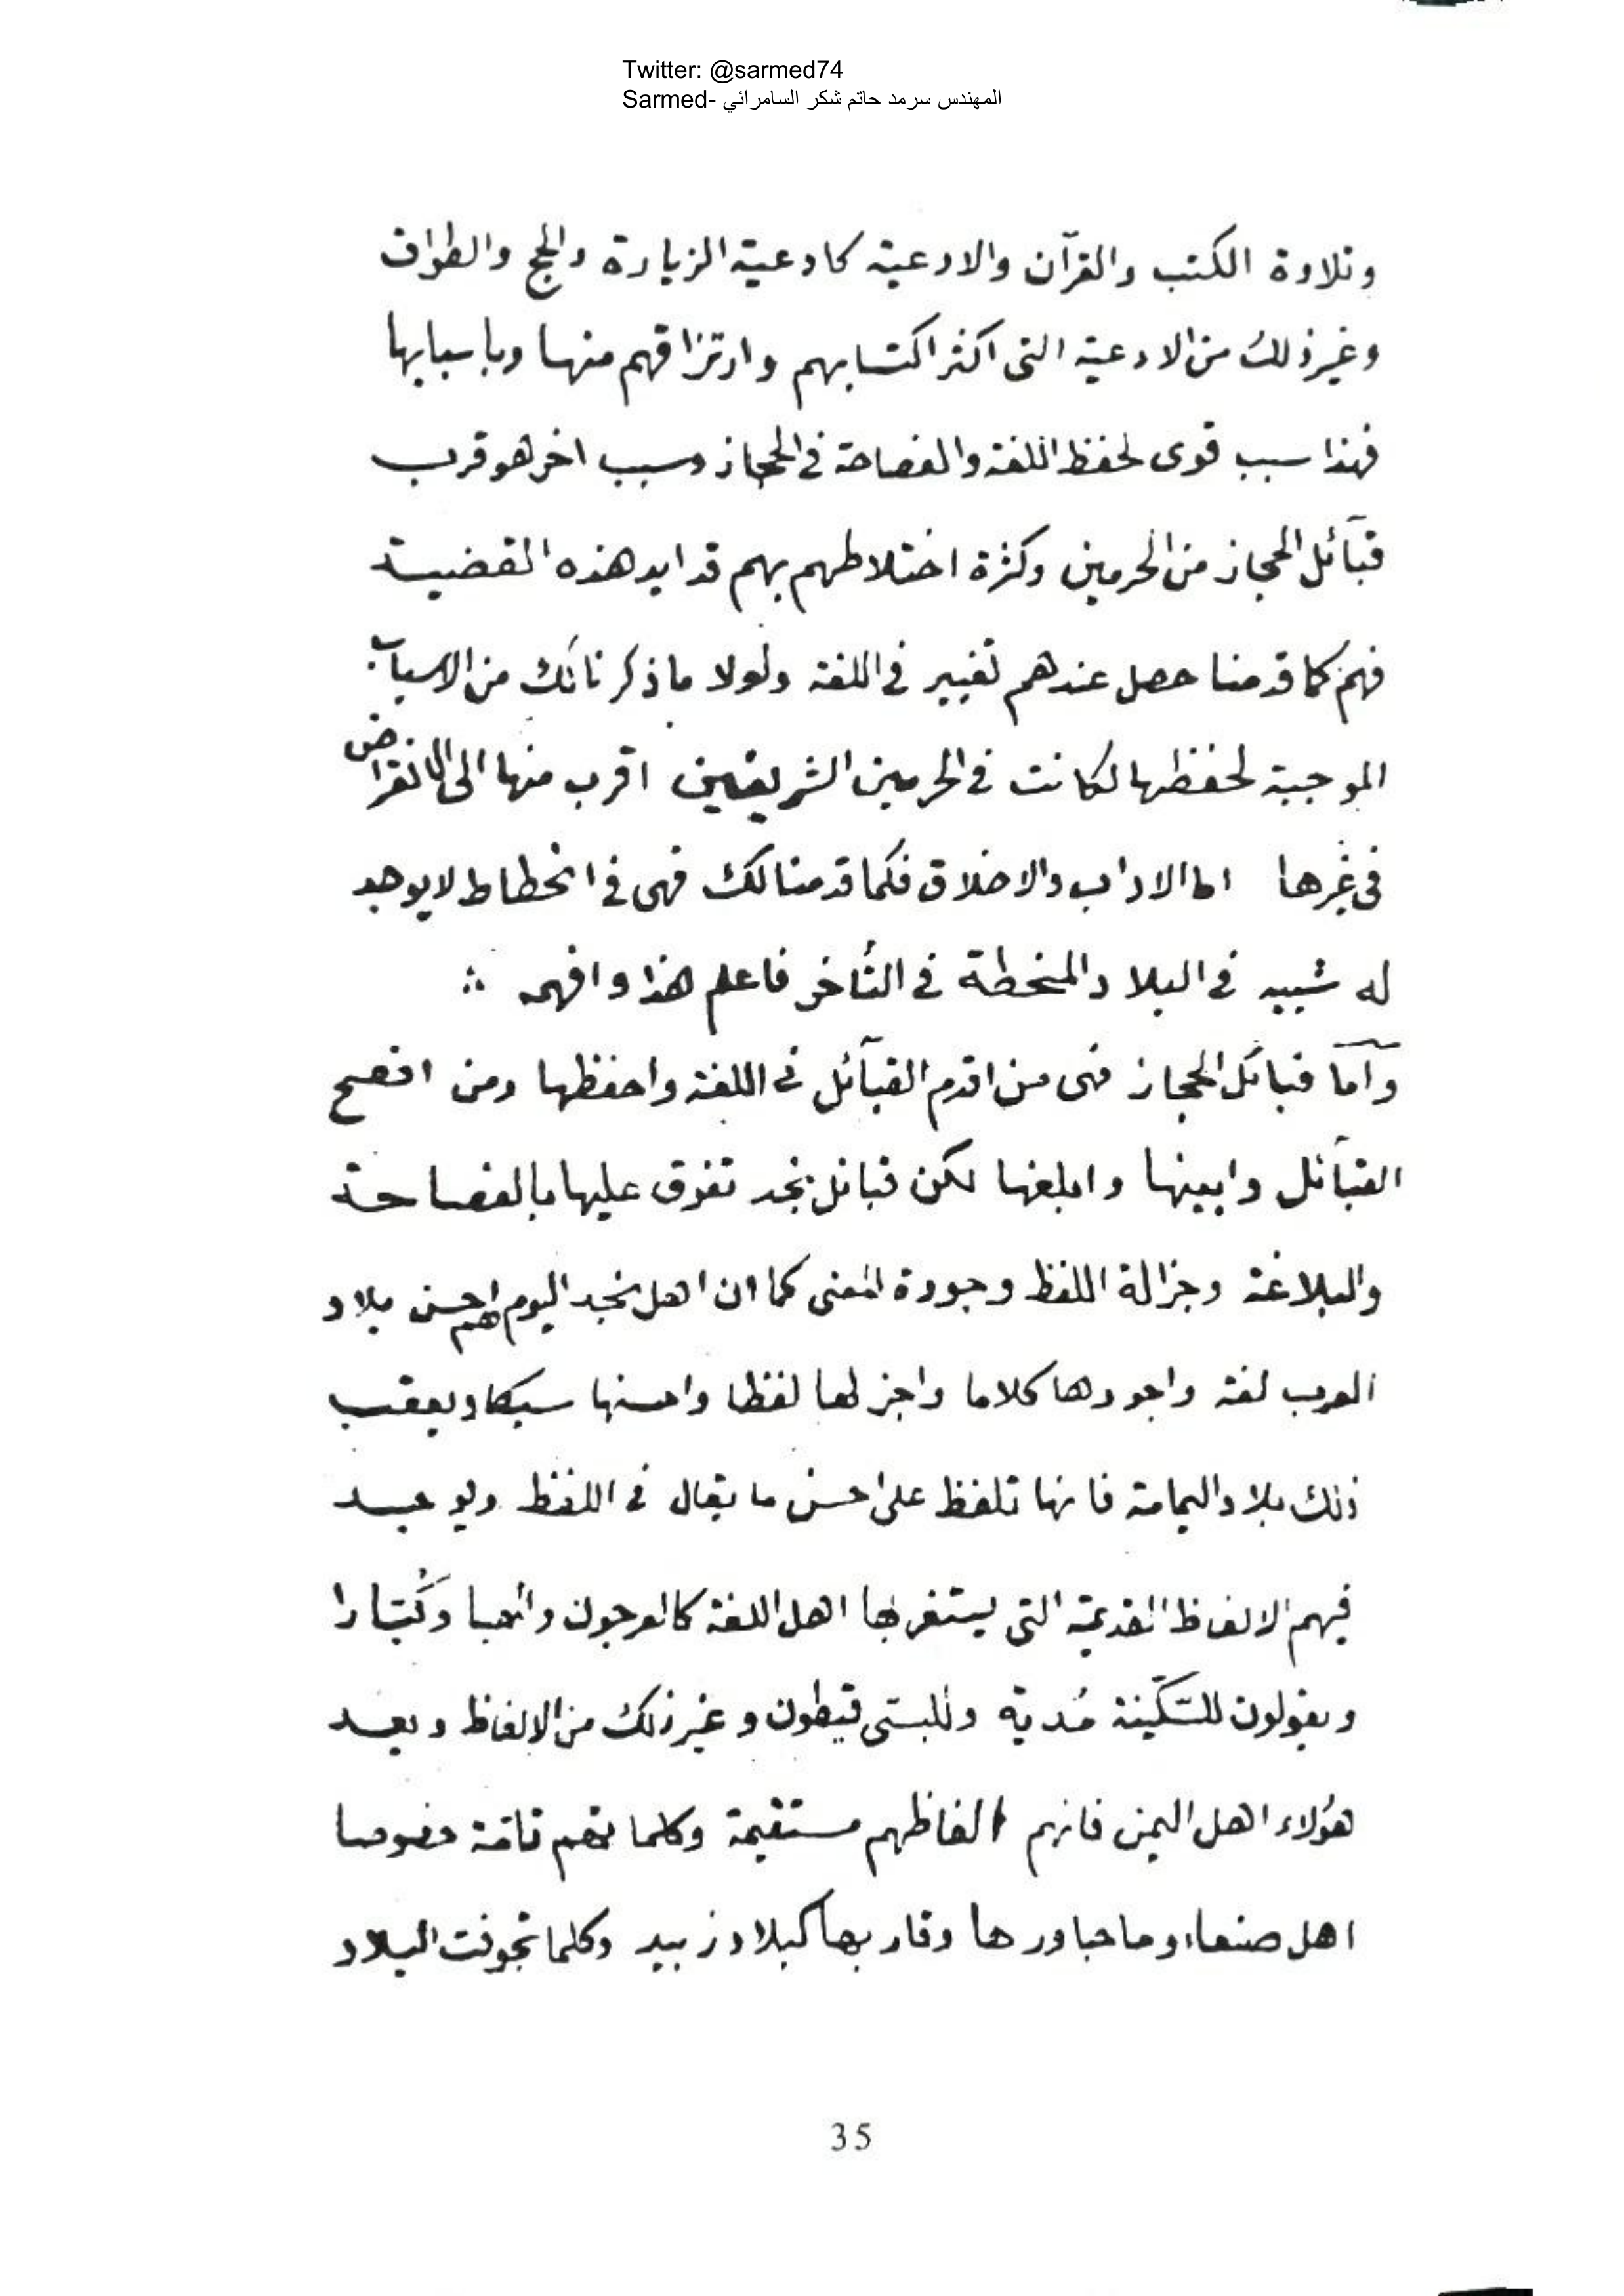 Twitter: @sarmed74
Sarmed- المهندس سرمد حاتم شكر السامرائي
وتلاوة الكتب والقرآن والادعية كادعية الزيارة والحج والطواف
وغير ذلك من الادعية التى اكثر اكتسابهم وارتزاقهم منها وباسبابها
فهذا سبب قوى لحفظ اللغة والفصاحة فى الحجاز وسبب اخر هو قرب
قبآئل الحجاز من الحرمين وكثرة اختلاطهم بهم قد ايد هذه القضية
فهم كما قدمنا حصل عندهم تغيير فى اللغة ولولا ما ذكرنا لك من الاسباب
الموجبة لحفظها لكانت فى الحرمين الشريفين اقرب منها الى الانقراض
فى غيرها اما الاداب والاخلاق فكما قدمنا لك فهى فى انحطاط لا يوجد
له شبيه فى البلاد المنحطة فى التأخر فاعلم هذا وافهمه ؞
وآما قبائل الحجاز فهى من اقدم القبآئل فى اللغة واحفظها ومن افصح
القبآئل وابينها وابلغها لكن قبائل نجد تفوق عليها بالفصاحة
والبلاغة وجزالة اللفظ وجودة المعنى كما ان اهل نجد اليوم هم احسن بلاد
العرب لغة واجودها كلاما واجزلها لفظا واحسنها سبكا ويعقب
ذلك بلاد اليمامة فانها تلفظ على احسن ما يقال فى اللفظ ويوجد
فيهم الالفاظ القديمة التى يستغربها اهل اللغة كالعرجون و وكُبَّارا
ويقولون للسّكّينة مُدية وللبستى قيطون وغير ذلك من الالفاظ وبعد
هؤلاء اهل اليمن فانهم الفاظهم مستقيمة وكلماتهم تامّة خصوصا
اهل صنعاء وما جاورها وقاربها كبلاد زبيد وكلما تجوفت البلاد
35